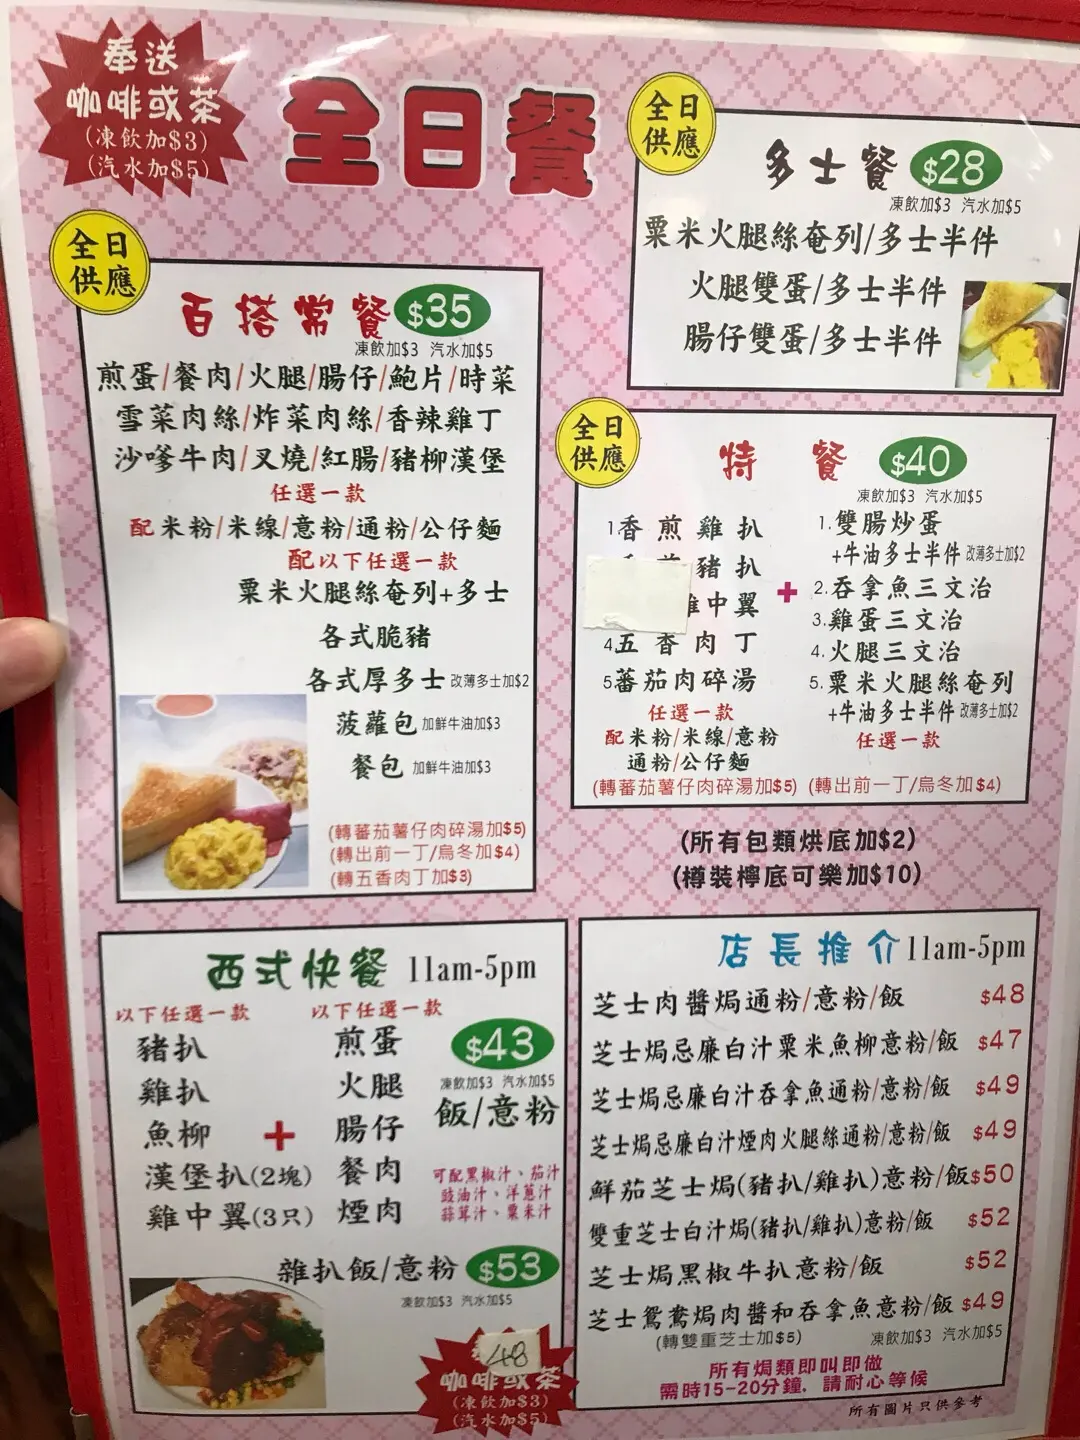 奉送
咖啡或茶
(凍飲加$3)
(汽水加$5)
全日餐
全日
供應
多士餐 $28
凍飲加$3 汽水加$5
粟米火腿絲奄列/多士半件
火腿雙蛋/多士半件
腸仔雙蛋/多士半件
全日
供應
百搭常餐 $35
凍飲加$3 汽水加$5
煎蛋/餐肉/火腿/腸仔/鮑片/時菜
雪菜肉絲/炸菜肉絲/香辣雞丁
沙嗲牛肉/叉燒/紅腸/豬柳漢堡
任選一款
配米粉/米線/意粉/通粉/公仔麵
配以下任選一款
粟米火腿絲奄列+多士
各式脆豬
各式厚多士 改薄多士加$2
菠蘿包 加鮮牛油加$3
餐包 加鮮牛油加$3
(轉蕃茄薯仔肉碎湯加$5)
(轉出前一丁/烏冬加$4)
(轉五香肉丁加$3)
全日
供應
特餐 $40
凍飲加$3 汽水加$5
1.香煎雞扒
豬扒
中翼
4.五香肉丁
5.蕃茄肉碎湯
任選一款
配米粉/米線/意粉
通粉/公仔麵
(轉蕃茄薯仔肉碎湯加$5)
+
1.雙腸炒蛋
+牛油多士半件 改薄多士加$2
2.吞拿魚三文治
3.雞蛋三文治
4.火腿三文治
5.粟米火腿絲奄列
+牛油多士半件 改薄多士加$2
任選一款
(轉出前一丁/烏冬加$4)
(所有包類烘底加$2)
(樽裝檸底可樂加$10)
西式快餐 11am-5pm
以下任選一款
豬扒
雞扒
魚柳
漢堡扒(2塊)
雞中翼(3只)
+
以下任選一款
煎蛋
火腿
腸仔
餐肉
煙肉
$43
凍飲加$3 汽水加$5
飯/意粉
可配黑椒汁、茄汁
豉油汁、洋蔥汁
蒜茸汁、粟米汁
雜扒飯/意粉 $53
凍飲加$3 汽水加$5
48
咖啡或茶
(凍飲加$3)
(汽水加$5)
店長推介 11am-5pm
芝士肉醬焗通粉/意粉/飯 $48
芝士焗忌廉白汁粟米魚柳意粉/飯 $47
芝士焗忌廉白汁吞拿魚通粉/意粉/飯 $49
芝士焗忌廉白汁煙肉火腿絲通粉/意粉/飯 $49
鮮茄芝士焗(豬扒/雞扒)意粉/飯 $50
雙重芝士白汁焗(豬扒/雞扒)意粉/飯 $52
芝士焗黑椒牛扒意粉/飯 $52
芝士鴛鴦焗肉醬和吞拿魚意粉/飯 $49
(轉雙重芝士加$5) 凍飲加$3 汽水加$5
所有焗類即叫即做
需時15-20分鐘,請耐心等候
所有圖片只供參考